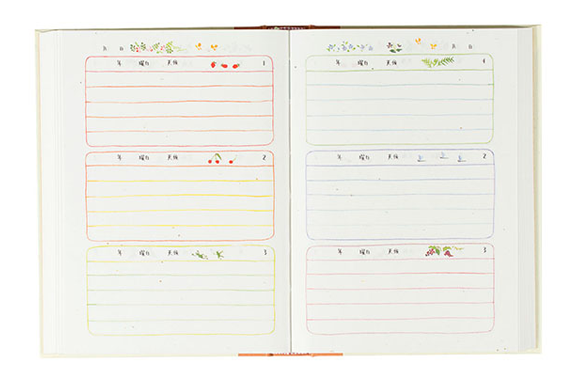 月 日
年 曜日 天候 1
年 曜日 天候 2
年 曜日 天候 3
月 日
年 曜日 天候 4
年 曜日 天候
年 曜日 天候